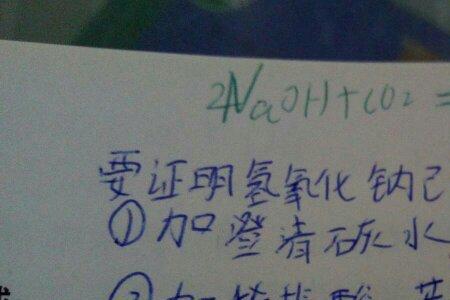 2NaOH+CO2=
要证明氢氧化钠已
①加澄清石灰水
②加